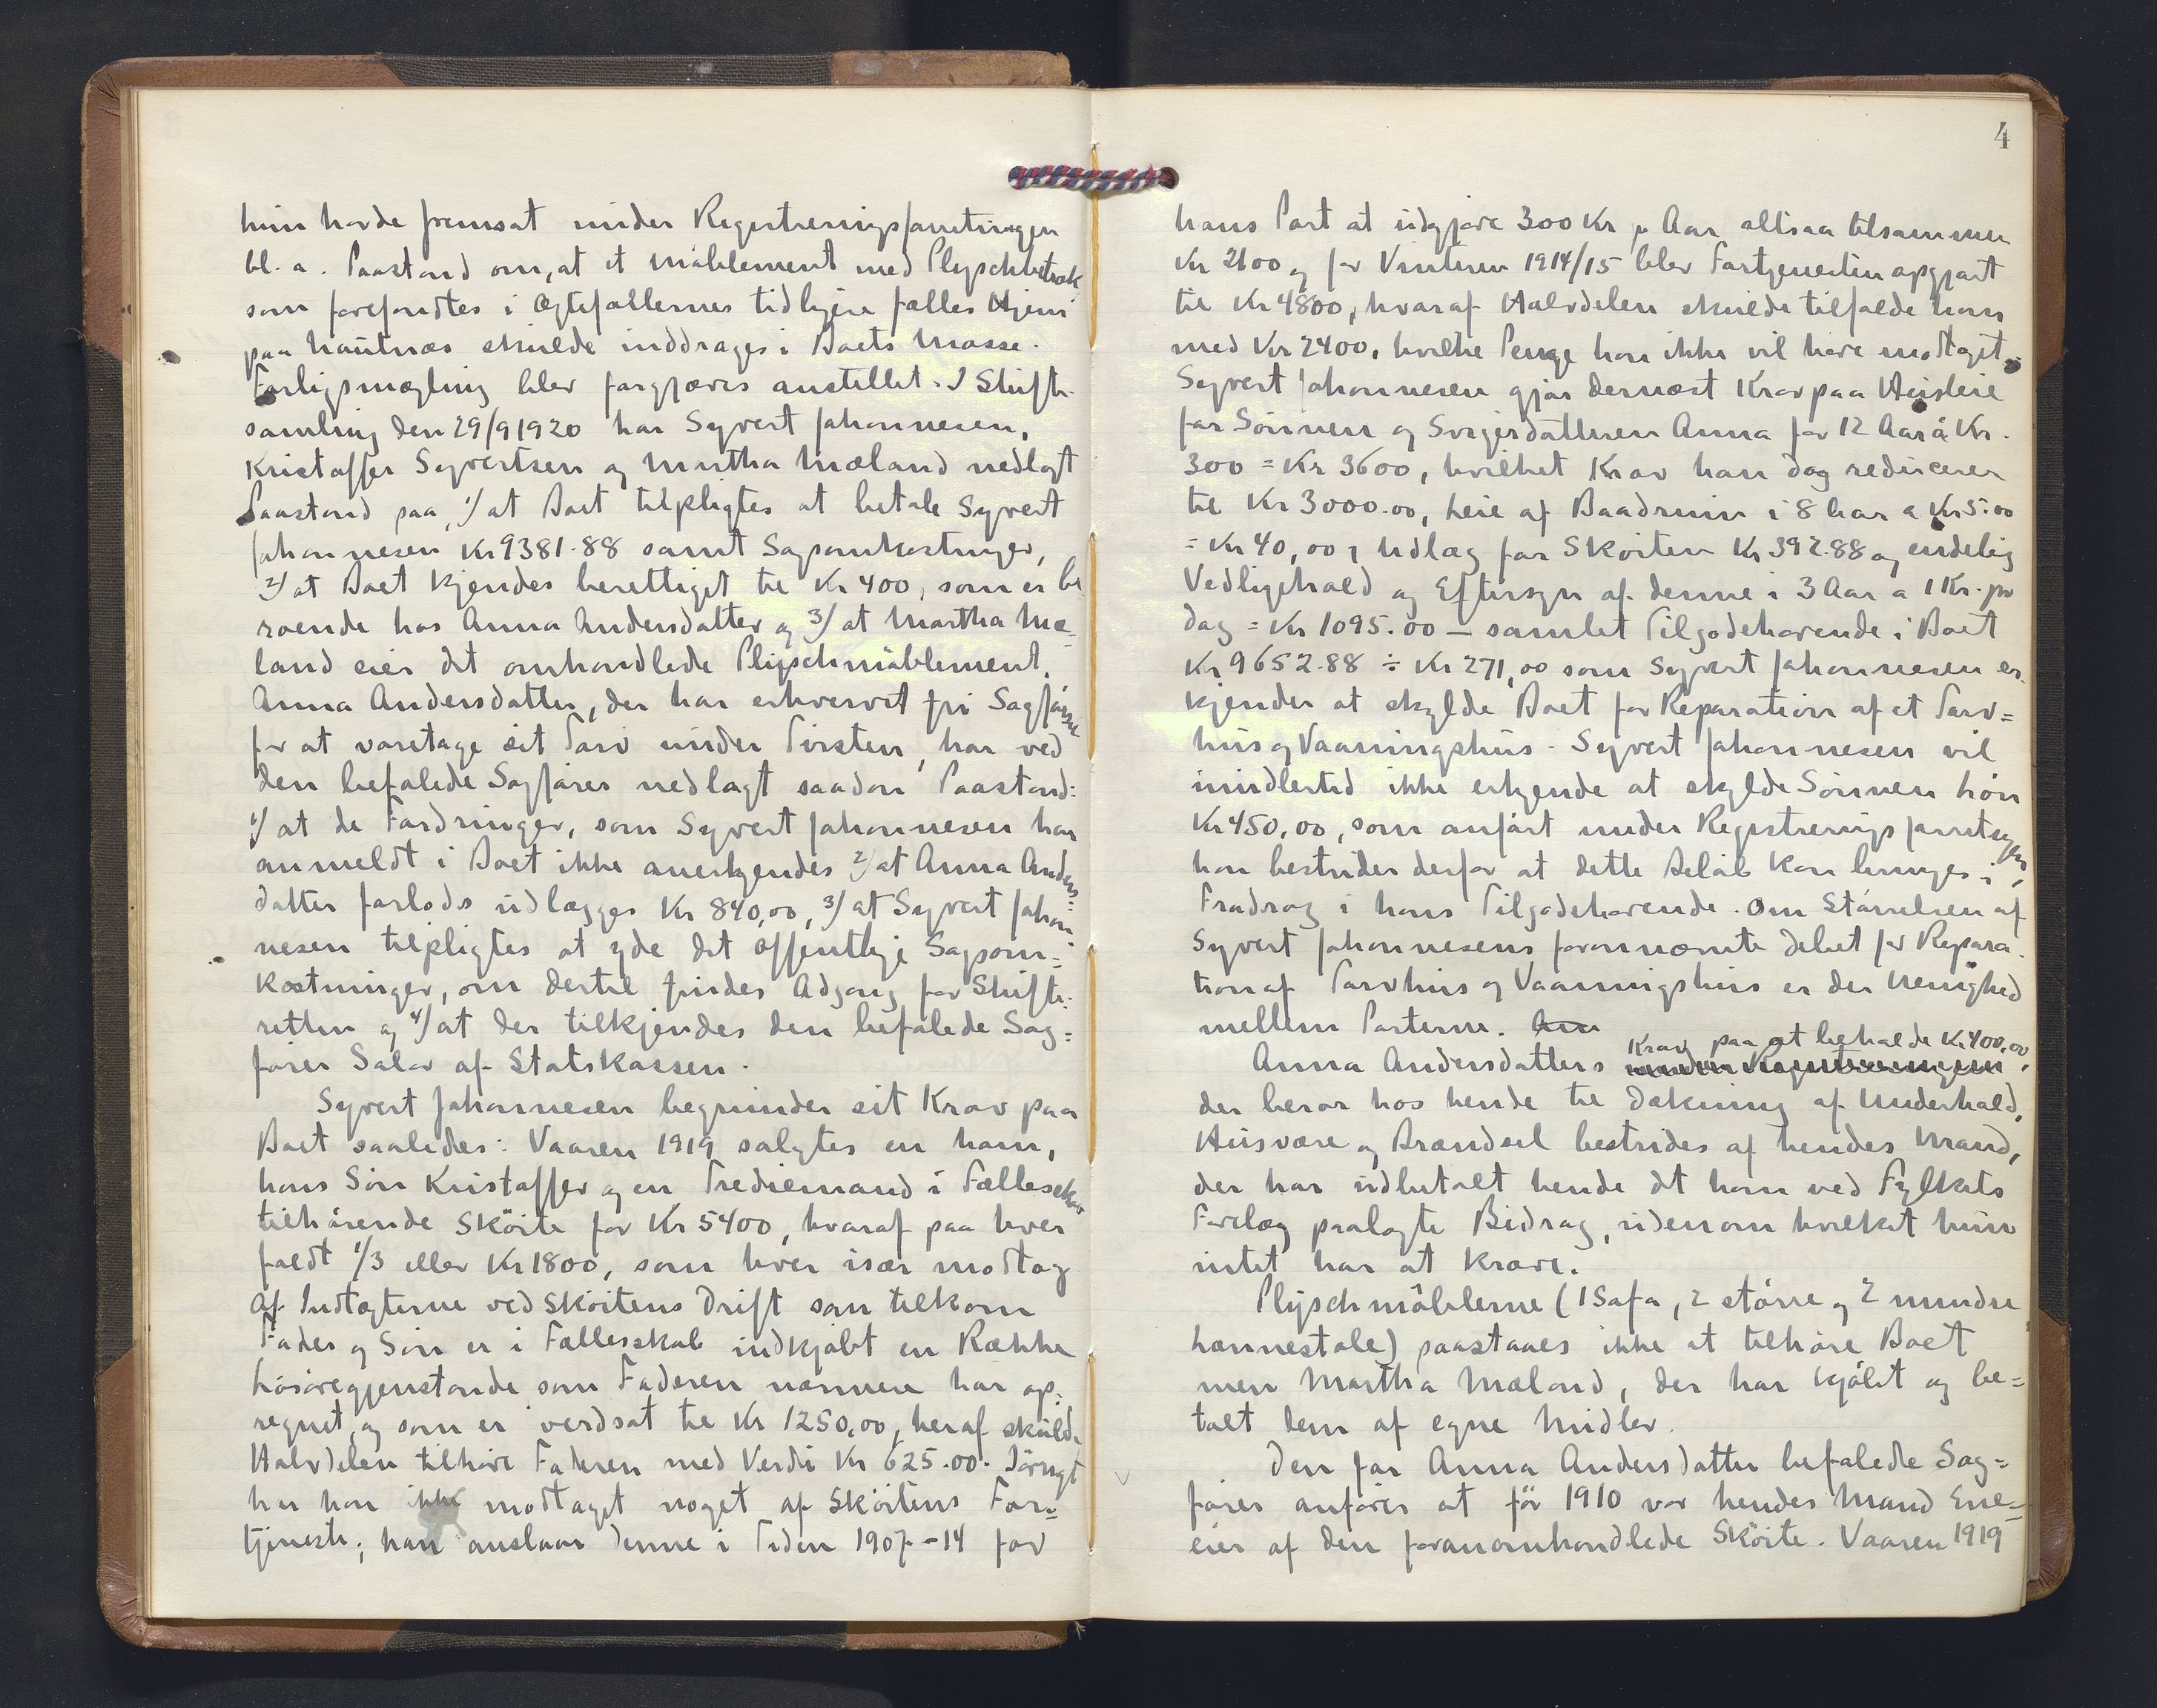 hun havde fremsat under Registreringsforretningen
bl. a. Paastand om, at et Møblement med Plyschbetræk
som forefandtes i Ægtefællernes tidligere fælles Hjem
paa Hautnes skulde inddrages i Boets Masse.
Forligsmægling blev forgjæves anstillet. I Skifte-
samling den 29/9 1920 har Syvert Johannesen,
Kristoffer Syvertsen og Martha Mæland nedlagt
Paastand paa, 1/ at Boet tilpligtes at betale Syvert
Johannesen Kr 9381.88 samt Sagsomkostninger,
2/ at Boet kjendes berettiget til Kr 400, som er be
roende hos Anna Andersdatter og 3/ at Martha Mæ-
land eier det omhandlede Plyschmøblement.
Anna Andersdatter, der har erhvervet fri Sagförsel
for at varetage sit Tarv under Tvisten, har ved
den befalede Sagfører nedlagt saadan Paastand:
1/ at de Fordringer, som Syvert Johannesen har
anmeldt i Boet ikke anerkjendes 2/ at Anna Anders-
datter forlods udlægges Kr 840,00, 3/ at Syvert Johan-
nesen tilpligtes at yde det offentlige Sagsom=
kostninger, om dertil findes Adgang for Skifte-
retten og 4/ at der tilkjendes den befalede Sag=
fører Salær af Statskassen.
Syvert Johannesen begrunder sit Krav paa
Boet saaledes: Vaaren 1919 solgtes en ham,
hans Søn Kristoffer og en Trediemand i Fællesskab
tilhørende Skøite for Kr 5400, hvoraf paa hver
faldt 1/3 eller Kr 1800, som hver især modtog
Af Indtægterne ved Skøitens Drift som tilkom
Fader og Søn er i Fællesskab indkjøbt en Række
Løsøregjenstande som Faderen nærmere har op-
regnet, og som er verdsat til Kr 1250,00, heraf skulde
Halvdelen tilhøre Faderen med Verdi Kr 625.00. Iørigt
har han ikke modtaget noget af Skøitens For=
tjeneste; han anslaar denne i Tiden 1907-14 for
4
hans Part at udgjøre 300 Kr pr Aar altsaa tilsammen
Kr 2100 og for Vinteren 1914/15 blev Fortjenesten opgjort
til Kr 4800, hvoraf Halvdelen skulde tilfalde ham
med Kr 2400, hvilke Penge han ikke vil have modtaget.
Syvert Johannesen gjør dernæst Krav paa Husleie
for Sønnen og Svigerdatteren Anna for 12 Aar á Kr.
300 = Kr 3600, hvilket Krav han dog reducerer
til Kr 3000.00, Leie af Baadrum i 8 Aar a Kr 5.00
= Kr 40,00, Udlæg for Skøiten Kr 392.88 og endelig
Vedligehold og Eftersyn af denne i 3 Aar a 1 Kr. pr
dag = Kr 1095.00 — samlet Tilgodehavende i Boet
Kr 9652.88 ÷ Kr 271,00 som Syvert Johannesen er
kjender at skylde Boet for Reparation af et Tarv=
hus og Vaaningshus. Syvert Johannesen vil
imidlertid ikke erkjende at skylde Sønnen Løn
Kr 450,00, som anført under Registreringsforretningen,
han bestrider derfor at dette Beløb kan bringes i
Fradrag i hans Tilgodehavende. Om Størrelsen af
Syvert Johannesens forannævnte Debet for Repara-
tion af Tarvhus og Vaaningshus er der Uenighed
mellem Parterne. Ann
Krav paa at beholde Kr 400,00,
Anna Andersdatters under Registreringen
der beror hos hende til Dækning af Underhold,
Husvære og Brændsel bestrides af hendes Mand,
der har udbetalt hende det ham ved Fylkets
Forelæg paalagte Bidrag, udenom hvilket hun
intet har at kræve.
Plyschmøblerne (1 Sofa, 2 større og 2 mindre
Lænnestole) paastaaes ikke at tilhøre Boet
men Martha Mæland, der har kjøbt og be=
talt dem af egne Midler.
Den for Anna Andersdatter befalede Sag=
fører anfører at før 1910 var hendes Mand Ene=
eier af den foranomhandlede Skøite. Vaaren 1919